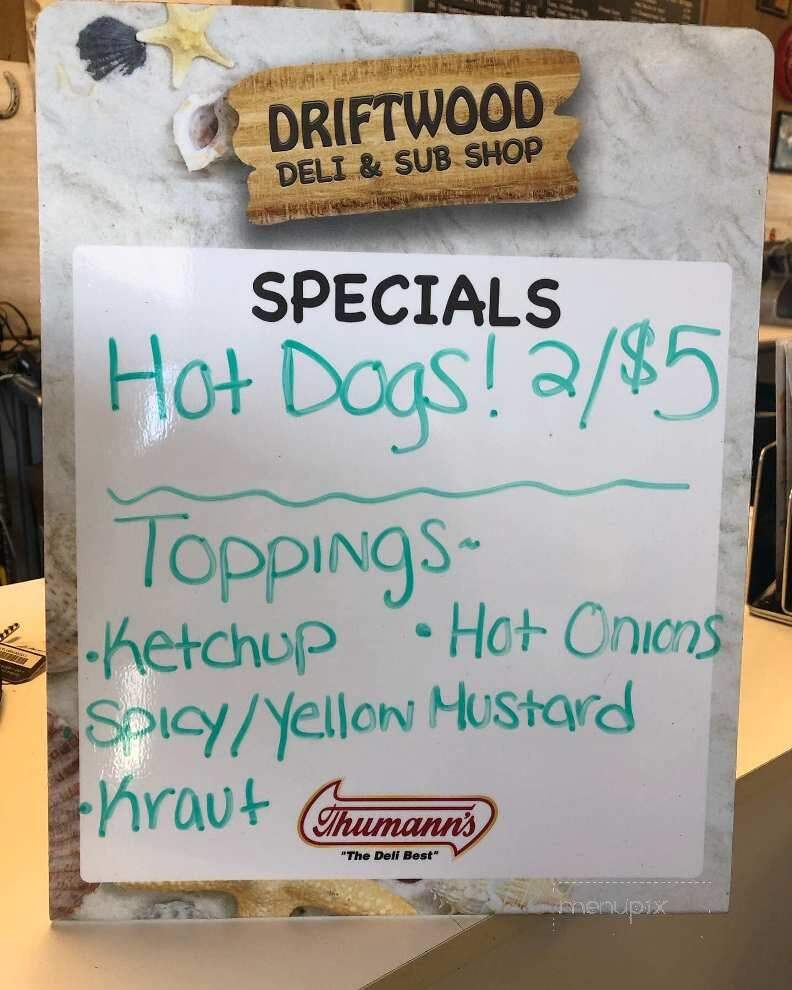 DRIFTWOOD
DELI & SUB SHOP
SPECIALS
Hot Dogs! 2/$5
Toppings~
•Ketchup •Hot Onions
Spicy/Yellow Mustard
•Kraut
Thumann's
"The Deli Best"
menupix